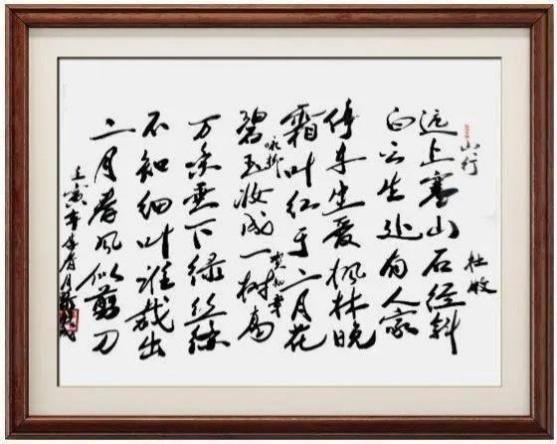 山行
杜牧
远上寒山石径斜
白云生处有人家
停车坐爱枫林晚
霜叶红于二月花
咏柳
贺知章
碧玉妆成一树高
万条垂下绿丝绦
不知细叶谁裁出
二月春风似剪刀
壬寅年